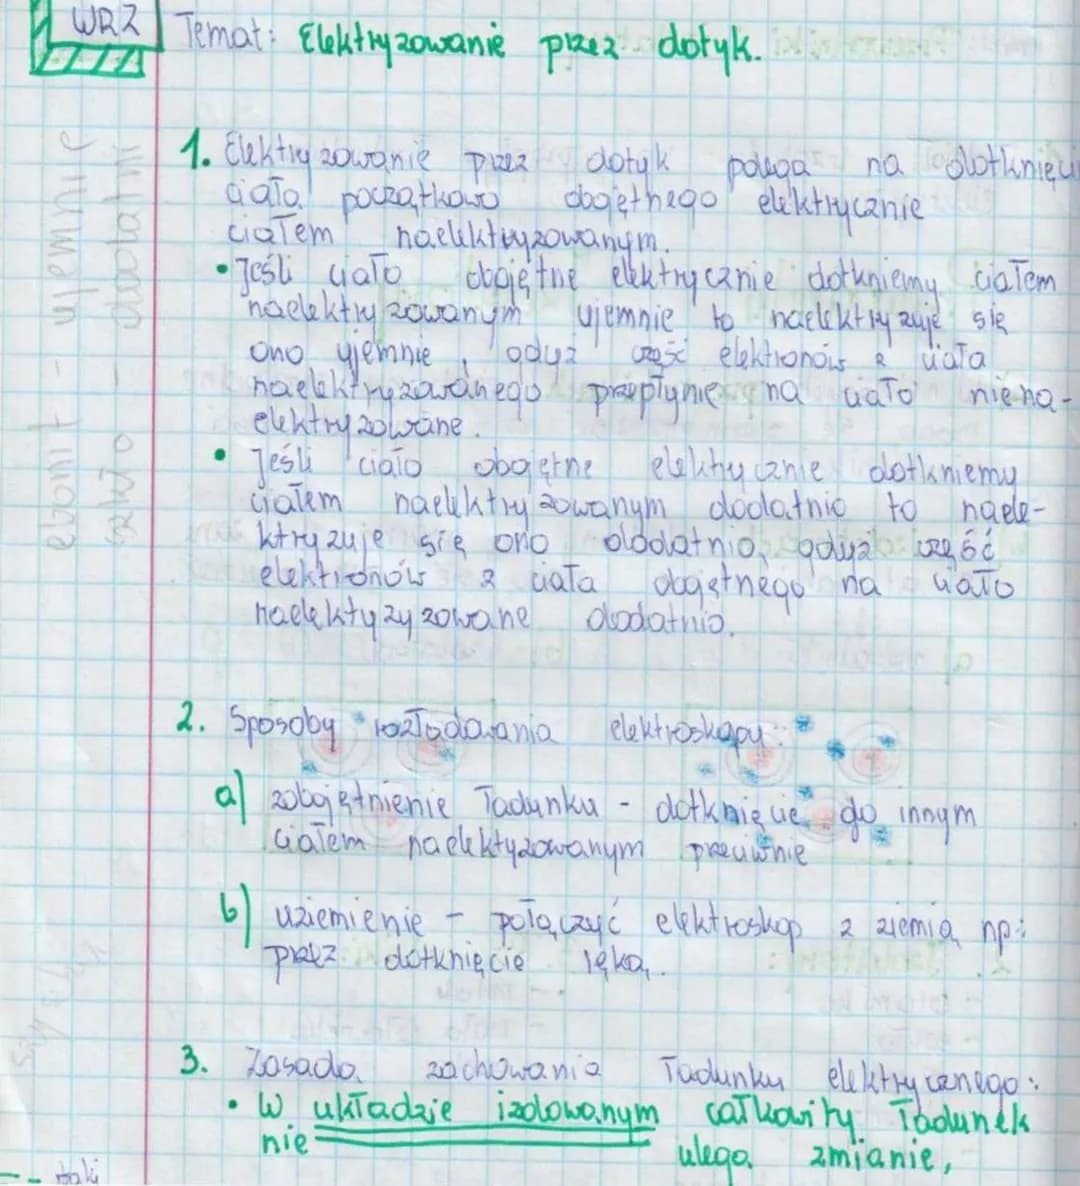 WRZ
Temat: Elektryzowanie przez dotyk.
1. Elektryzowanie przez dotyk polega na dotknięciu
ciała początkowo obojętnego elektrycznie
ciałem naelektryzowanym.
• Jeśli ciało obojętne elektrycznie dotkniemy ciałem
naelektryzowanym ujemnie to naelektryzuje się
ono ujemnie, gdyż część elektronów z ciała
naelektryzowanego przepłynie na ciało niena-
elektryzowane.
• Jeśli ciało obojętne elektrycznie dotkniemy
ciałem naelektryzowanym dodatnio to naele-
ktryzuje się ono dodatnio, gdyż część
elektronów z ciała obojętnego na ciało
naelektyzyzowane dodatnio.
ebonit - ujemnie
szkło - dodatni
2. Sposoby rozładowania elektroskopu:
a) zobojętnienie ładunku - dotknięcie go innym
ciałem naelektyzowanym przeciwnie
b) uziemienie - połączyć elektroskop z ziemią np:
przez dotknięcie ręką.
3. Zasada zachowania ładunku elektrycznego:
• W układzie izolowanym całkowity ładunek
nie ulega zmianie,
taki